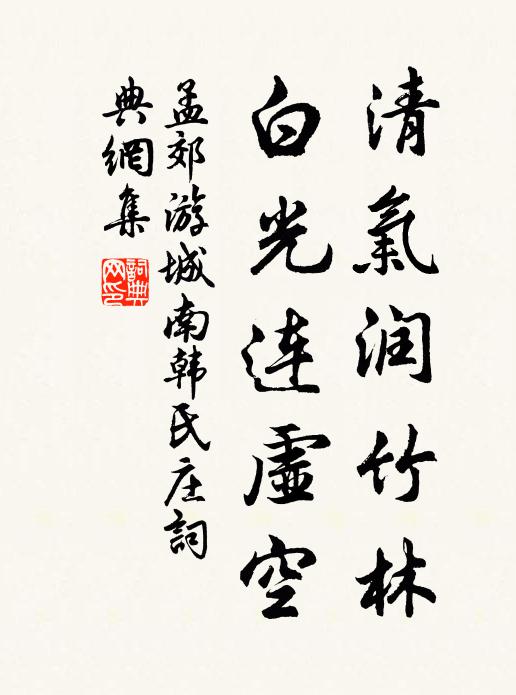 清氣润竹林
白光连虚空
孟郊游城南韩氏庄詞
典網集
詞典网印